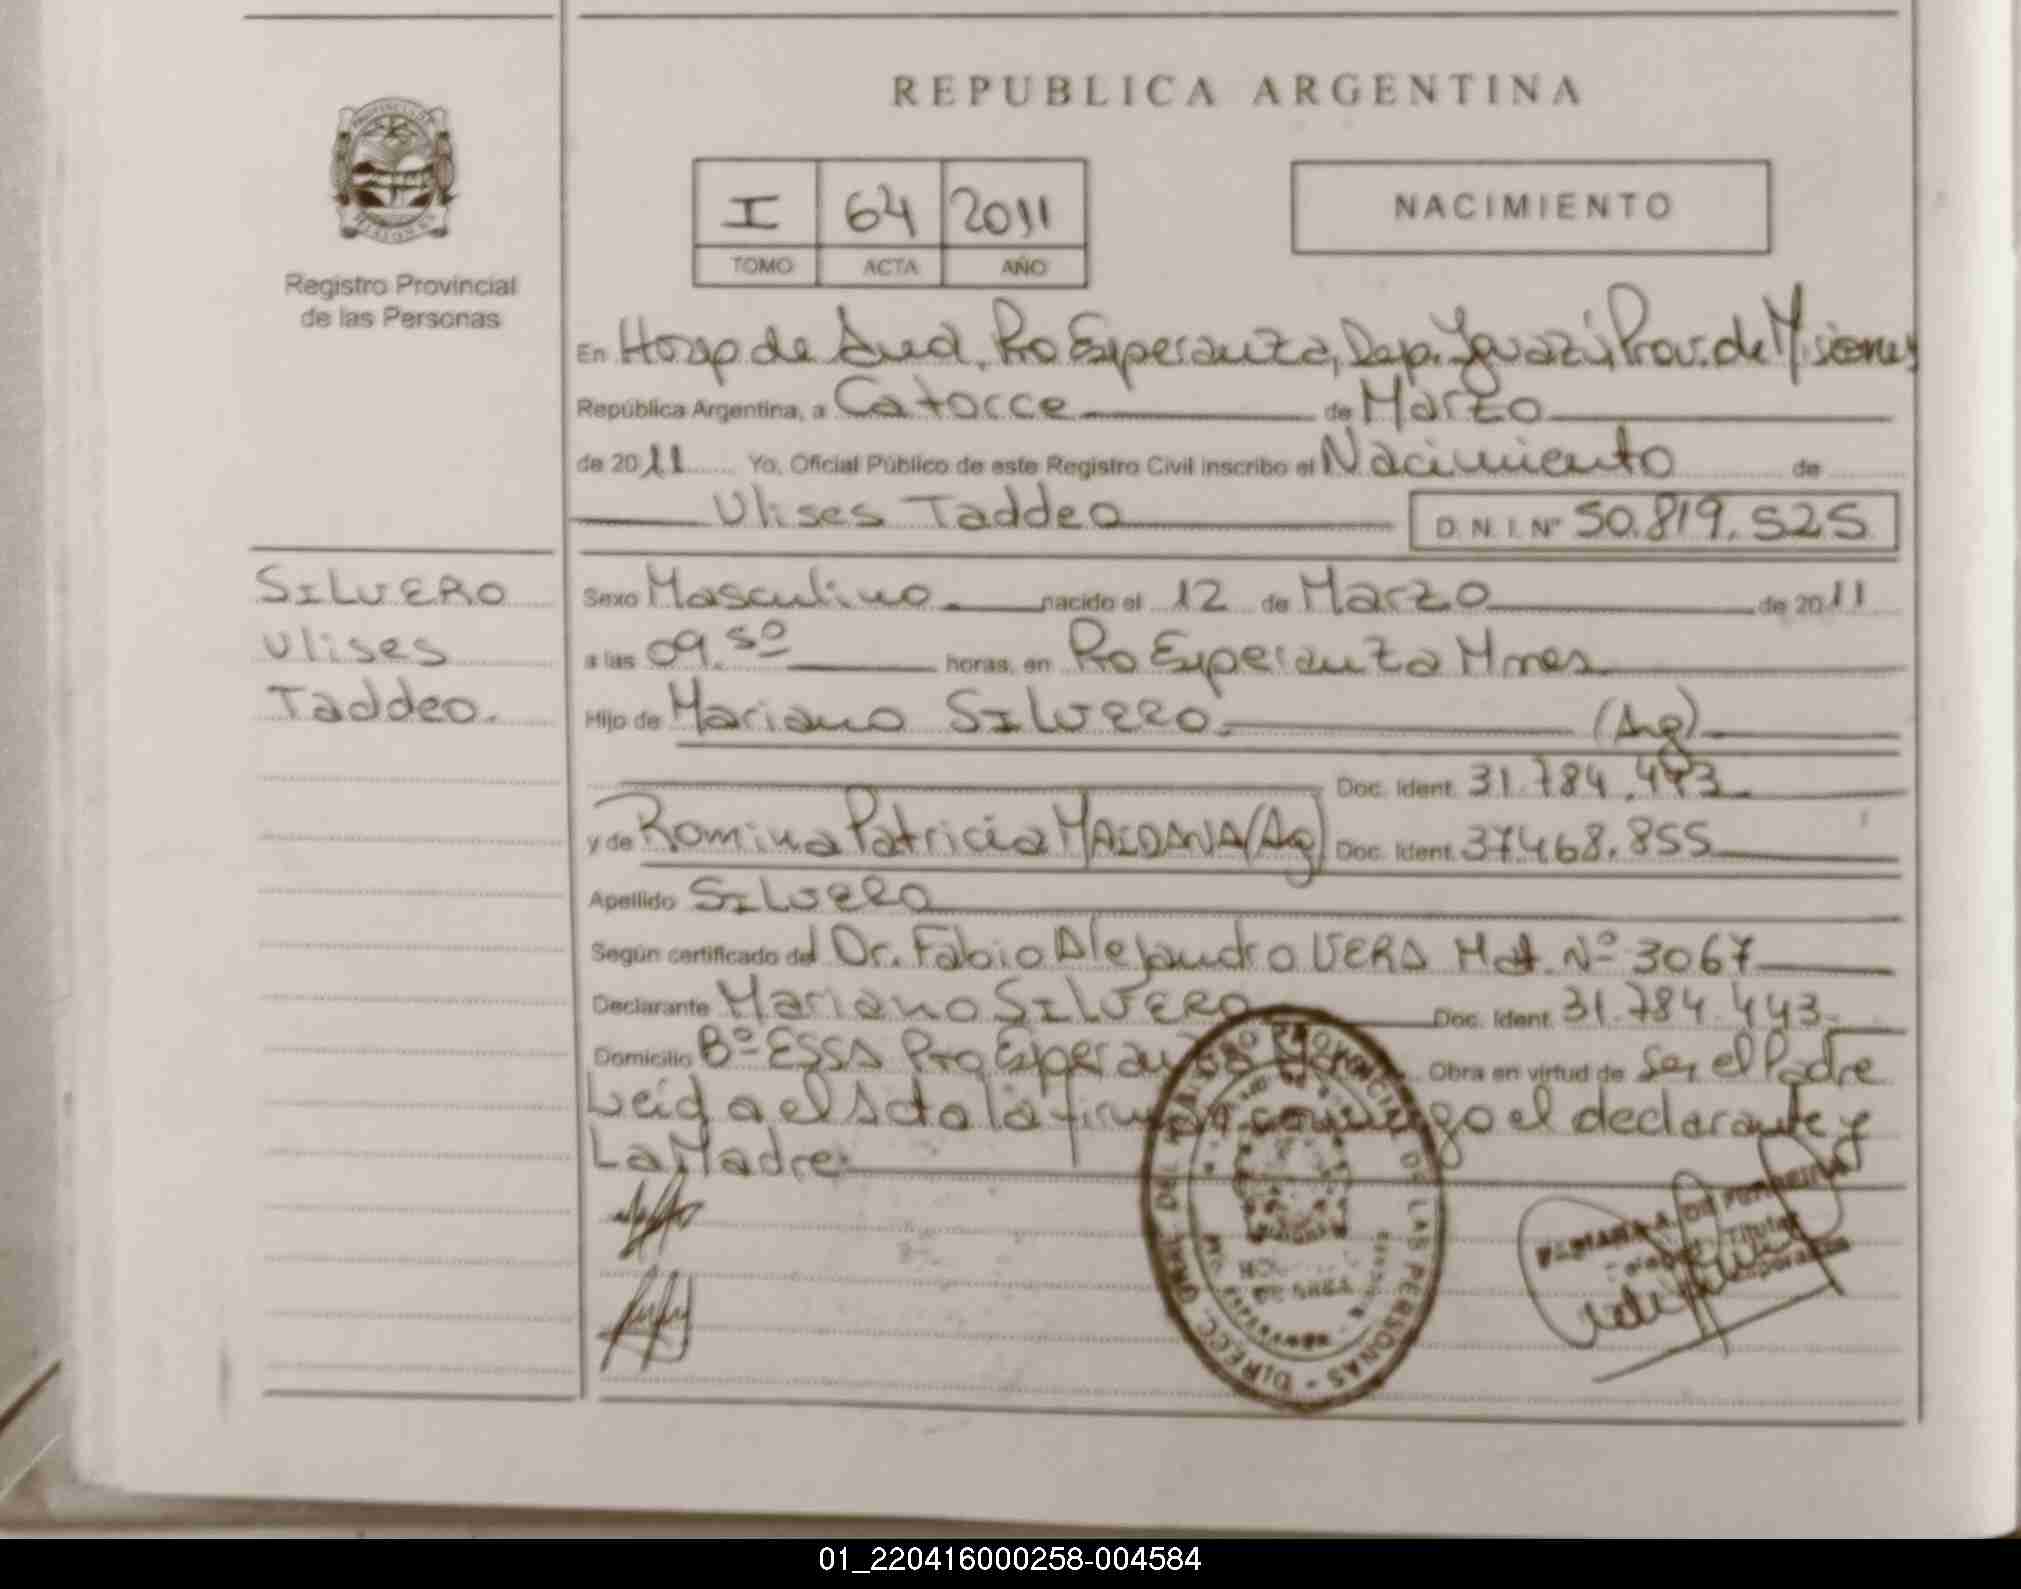 REPUBLICA ARGENTINA
I 64 2011
TOMO ACTA AÑO
NACIMIENTO
Registro Provincial
de las Personas
En Hosp. de Area, Pto Esperanza, Dep. Iguazú, Prov. de Misiones
República Argentina, a Catorce de Marzo
de 2011 Yo, Oficial Público de este Registro Civil inscribo el Nacimiento de
Ulises Taddeo D. N. I. Nº 50.819.525
SILVERO
Ulises
Taddeo.
Sexo Masculino nacido el 12 de Marzo de 2011
a las 09.50 horas, en Pto Esperanza Mnes
Hijo de Mariano SILVERO. (Arg)
Doc. Ident. 31.784.443
y de Romina Patricia MAIDANA (Arg) Doc. Ident. 37.468.855
Apellido SILVERO
Según certificado del Dr. Fabio Alejandro VERA Mat. Nº 3067
Declarante Mariano SILVERO Doc. Ident. 31.784.443
Domicilio Bº ESSA Pto Esperanza Obra en virtud de Ser el Padre
Leid a el Acta la firman conmigo el declarante y
La Madre.
DIRECC. GRAL. DEL REGISTRO PROVINCIAL DE LAS PERSONAS
Titular
01_220416000258-004584